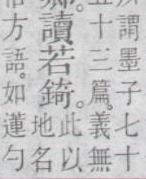 謂墨子七十
五十三篇。義無
讀若錡。
此以
地名
方語。如蓮勺